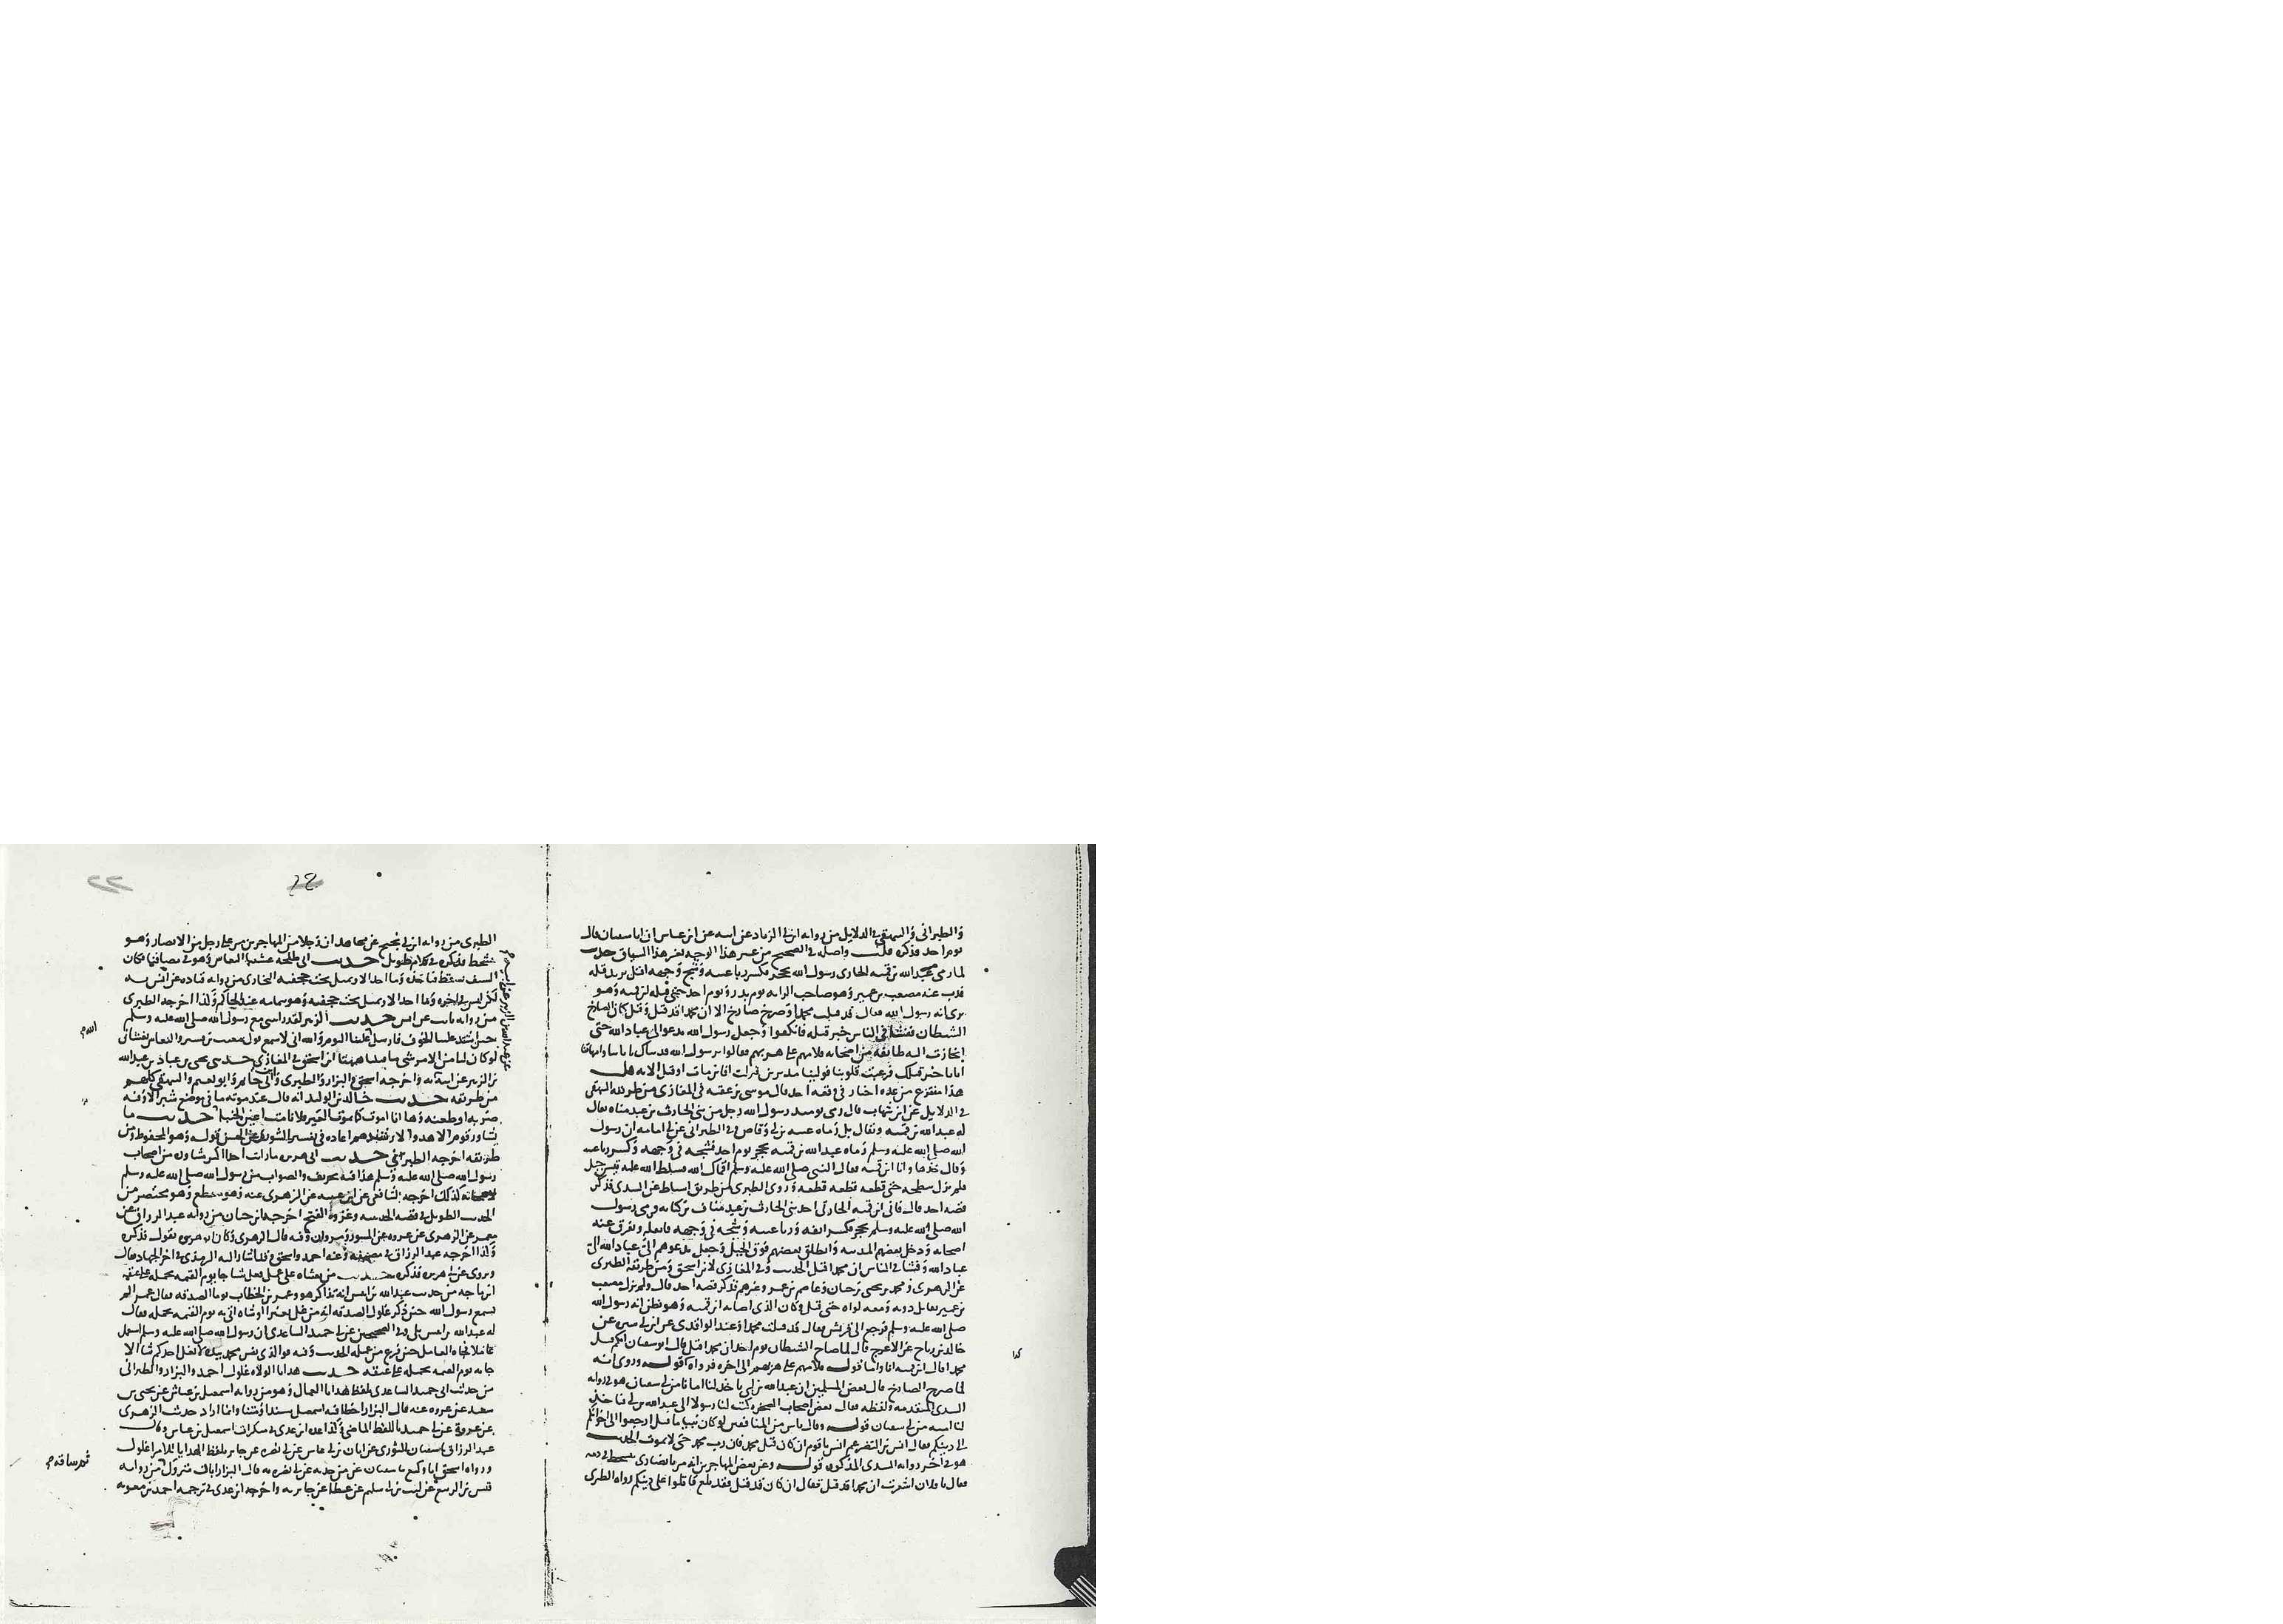 والطبراني والبيهقي في الدلايل من رواية ابن ابي الزناد عن ابيه عن ابن عباس ان ابا سفيان قال
يوم احد فذكره قلت واصله في الصحيح من غير هذا الوجه بغير هذا السياق حديث
لما رمى عبد الله بن قمية الحارثي رسول الله بحجر فكسر رباعيته وشج وجهه اقبل يريد قتله
فذب عنه مصعب بن عمير وهو صاحب الراية يوم بدر ويوم احد حتى قتله ابن قمية وهو
يرى انه رسول الله فقال قد قتلت محمدا وصرخ صارخ الا ان محمدا قد قتل وقيل كان الصارخ
الشيطان ففشا في الناس خبر قتله فانكفوا وجعل رسول الله يدعو الى عباد الله حتى
انحازت اليه طائفة من اصحابه فلامهم على هربهم فقالوا يا رسول الله فديناك بابائنا وامهاتنا
اتانا خبر قتلك فرعبت قلوبنا فولينا مدبرين فنزلت افان مات او قتل الاية قلت
هذا منتزع من عدة اخبار في وقعة احد قال موسى بن عقبة في المغازي ومن طريقه البيهقي
في الدلايل عن ابن شهاب قال رمى يومئذ رسول الله رجل من بني الحارث بن عبد مناة يقال
له عبد الله بن قمية ويقال بل رماه عتبة بن ابي وقاص وفي الطبراني عن ابي امامة ان رسول
الله صلى الله عليه وسلم رماه عبد الله بن قمية بحجر يوم احد فشجه في وجهه وكسر رباعيته
وقال خذها وانا ابن قمية فقال النبي صلى الله عليه وسلم اقماك الله فسلط الله عليه تيس جبل
فلم يزل ينطحه حتى قطعه قطعة قطعة وروى الطبري من طريق اسباط عن السدي فذكر
قصة احد قال فاتى ابن قمية الحارثي احد بني الحارث بن عبد مناف بن كنانة ورمى رسول
الله صلى الله عليه وسلم بحجر فكسر انفه ورباعيته وشجه في وجهه فاثقله وتفرق عنه
اصحابه ودخل بعضهم المدينة وانطلق بعضهم فوق الجبل وجعل يدعوهم الي عباد الله الي
عباد الله وفشا في الناس ان محمدا قتل الحديث وفي المغازي لابن اسحق ومن طريقه الطبري
عن الزهري ومحمد بن يحيى بن حبان وعاصم بن عمر وغيرهم فذكر قصة احد قال ولم يزل مصعب
بن عمير يقاتل دونه ومعه لواه حتى قتل وكان الذي اصابه ابن قمية وهو يظن انه رسول الله
صلى الله عليه وسلم فرجع الى قريش فقال قد قتلت محمدا وعند الواقدي عن ابن ابي سبرة عن
خالد بن رباح عن الاعرج قال لما صاح الشيطان يوم احد ان محمدا قتل قال ابو سفيان ايكم قتل
محمدا قال ابن قمية انا واما قوله فلامهم على هربهم الى اخره فرواه قوله وروي انه
لما صرخ الصارخ قال بعض المسلمين ان عبد الله بن ابي ياخذ لنا امانا من ابي سفيان هو في رواية
السدي المتقدمة ولفظه فقال بعض اصحاب الصخرة ليت لنا رسولا الى عبد الله بن ابي فياخذ
لنا امنة من ابي سفيان قوله وقال ناس من المنافقين لو كان نبيا ما قتل ارجعوا الى اخوانكم
والى دينكم فقال انس بن النضر عم انس يا قوم ان كان قتل محمد فان رب محمد حي لا يموت الحديث
هو في اخر رواية السدي المذكورة قوله وعن بعض المهاجرين انه مر بانصاري يتشحط في دمه
فقال يا فلان اشعرت ان محمدا قد قتل فقال ان كان قد قتل فقد بلغ فقاتلوا على دينكم رواه الطبري
كذا
٢٢
الطبري من رواية ابن ابي نجيح عن مجاهد ان رجلا من المهاجرين مر على رجل من الانصار وهو
يتشحط فذكره في كلام طويل حديث ابي طلحة غشينا النعاس وهو في مصافنا فكان
السيف يسقط فياخذه وما احد الا ويميل تحت حجفته البخاري من رواية قتادة عن انس به
لكن ليس في اخره وما احد الا ويميل تحت حجفته وهو بتمامه عند الحاكم وكذا اخرجه الطبري
من رواية ثابت عن انس حديث الزبير لقد رايتني مع رسول الله صلى الله عليه وسلم
حين اشتد علينا الخوف فارسل علينا النوم والله اني لاسمع قول معتب بن قشير والنعاس يغشاني
لو كان لنا من الامر شي ما قتلنا ههنا ابن اسحق في المغازي حدثني يحيى بن عباد بن عبد الله
بن الزبير عن ابيه به واخرجه اسحق والبزار والطبري وابن ابي حاتم وابو نعيم والبيهقي كلهم
من طريقه حديث خالد بن الوليد انه قال عند موته ما في موضع شبر الا وفيه
ضربة او طعنة وها انا اموت كما يموت العير فلا نامت اعين الجبنا حديث ما
تشاور قوم الا هدوا لارشد امرهم اعاده في تفسير الشورى عن الحسن قوله وهو المحفوظ ومن
طريقه اخرجه الطبراني حديث ابي هريرة ما رايت احدا اكثر مشاورة من اصحاب
رسول الله صلى الله عليه وسلم هذا فيه تحريف والصواب من رسول الله صلى الله عليه وسلم
لاصحابه كذلك اخرجه الشافعي عن ابن عيينة عن الزهري عنه وهو منقطع وهو مختصر من
الحديث الطويل في قصة الحديبية وغزوة الفتح اخرجه ابن حبان من رواية عبد الرزاق عن
معمر عن الزهري عن عروة عن المسور ومروان وفيه قال الزهري وكان ابو هريرة يقول فذكره
وكذا اخرجه عبد الرزاق في مصنفه وعنه احمد واسحق وقد اشار اليه الترمذي في اخر الجهاد فقال
ويروى عن ابي هريرة فذكره حديث من بعثناه على عمل فغل شيا جا يوم القيمة يحمله على عنقه
ابن ماجه من حديث عبد الله بن انيس انه تذاكر هو وعمر بن الخطاب يوما الصدقة فقال عمر الم
تسمع رسول الله حين ذكر غلول الصدقة انه من غل بعيرا او شاة اتي به يوم القيمة يحمله فقال
له عبد الله بن انيس بلى وفي الصحيحين عن ابي حميد الساعدي ان رسول الله صلى الله عليه وسلم استعمل
عاملا فجاه العامل حين فرغ من عمله الحديث وفيه فوالذي نفس محمد بيده لا يغل احدكم شيا الا
جا به يوم القيمة يحمله على عنقه حديث هدايا الولاة غلول احمد والبزار والطبراني
من حديث ابي حميد الساعدي بلفظ هدايا العمال وهو من رواية اسمعيل بن عياش عن يحيى بن
سعيد عن عروة عنه قال البزار اخطا فيه اسمعيل سندا ومتنا وانما اراد حديث الزهري
عن عروة عن ابي حميد باللفظ الماضي وكذا عده ابن عدي في منكرات اسمعيل بن عياش وقال
عبد الرزاق ثنا سفيان الثوري عن ابان بن ابي عياش عن ابي نضرة عن جابر بلفظ الهدايا للامرا غلول
ورواه اسحق انا وكيع ثنا سفيان عن من حدثه عن ابي نضرة به قال البزار ابان متروك من رواية
قيس بن الربيع عن ليث بن ابي سليم عن عطا عن جابر به واخرجه ابن عدي في ترجمة احمد بن معوية
عن عبد الله بن الزبير عن ابيه